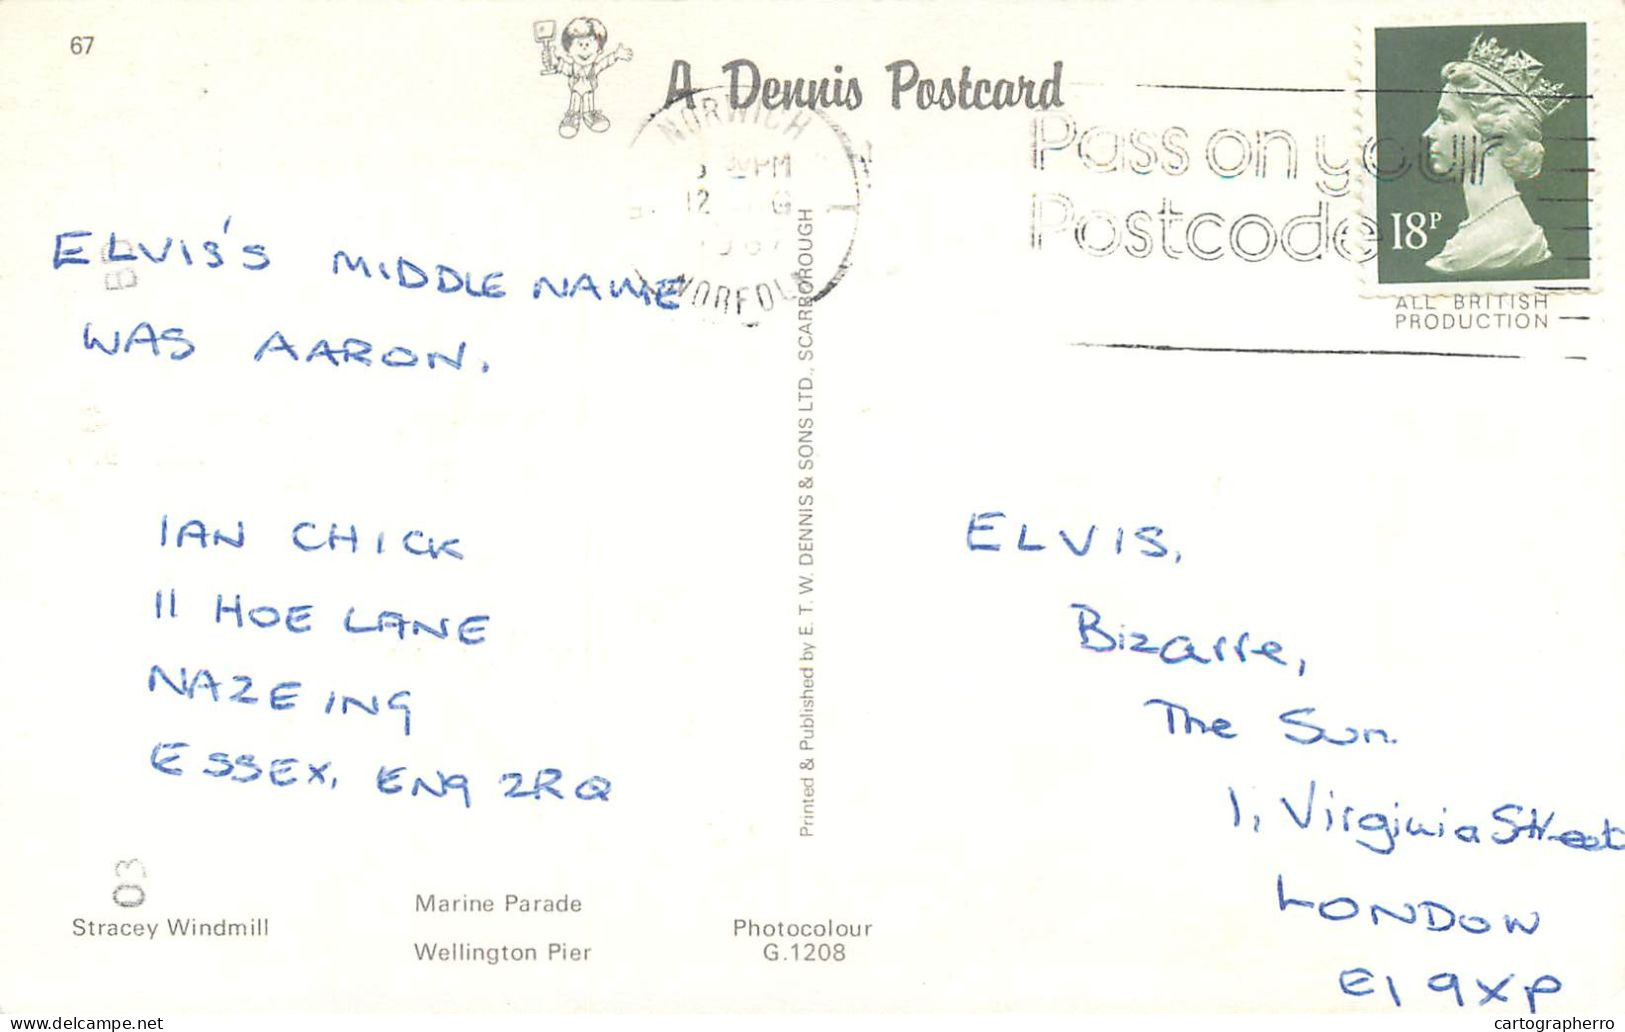 67
A Dennis Postcard
NORWICH
PM
12
NORFOLK
Pass on your
Postcode
18P
ALL BRITISH
PRODUCTION
ELVIS'S MIDDLE NAME
WAS AARON.
IAN CHICK
11 HOE LANE
NAZEING
ESSEX. EN9 2RQ
Printed & Published by E. T. W. DENNIS & SONS LTD., SCARBOROUGH
ELVIS,
Bizarre,
The Sun.
1, Virginia Street
LONDON
E1 9XP
03
Stracey Windmill
Marine Parade
Wellington Pier
Photocolour
G.1208
delcampe.net
cartographerro